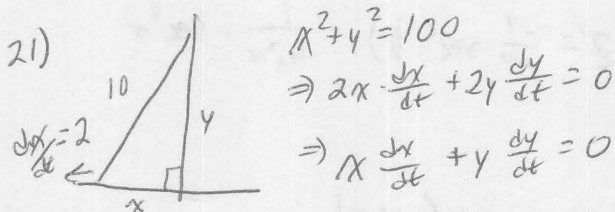 21)
10
y
dx/dt = 2
x
x² + y² = 100
⇒ 2x · dx/dt + 2y dy/dt = 0
⇒ x dx/dt + y dy/dt = 0